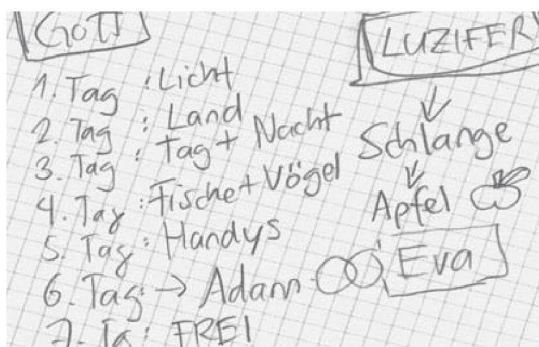 GOTT
1. Tag : Licht
2. Tag : Land
3. Tag : Tag + Nacht
4. Tag : Fische + Vögel
5. Tag : Handys
6. Tag: → Adam
7. Ta : FREI
LUZIFER
Schlange
Apfel
Eva